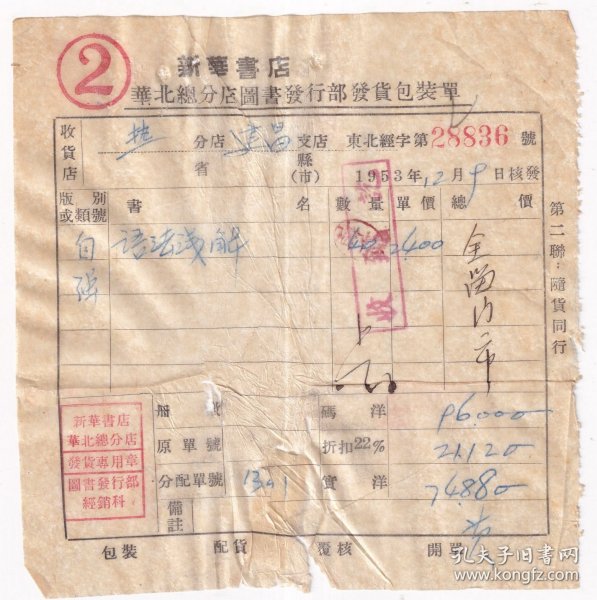 2
新華書店
華北總分店圖書發行部發貨包裝單
收貨店 热 分店 建昌 支店 東北經字第28836號
省 縣(市) 1953年12月9日核發
版別或類號 書名 數量 單價 總價
自強 语法浅解 40 2400
收
第二聯：隨貨同行
新華書店
華北總分店
發貨專用章
圖書發行部
經銷科
冊 碼洋 96.000
原單號 折扣22% 21.120
分配單號 1321 實洋 74.880
備註
包裝 配貨 覆核 開單
孔夫子旧书网
www.kongfz.com